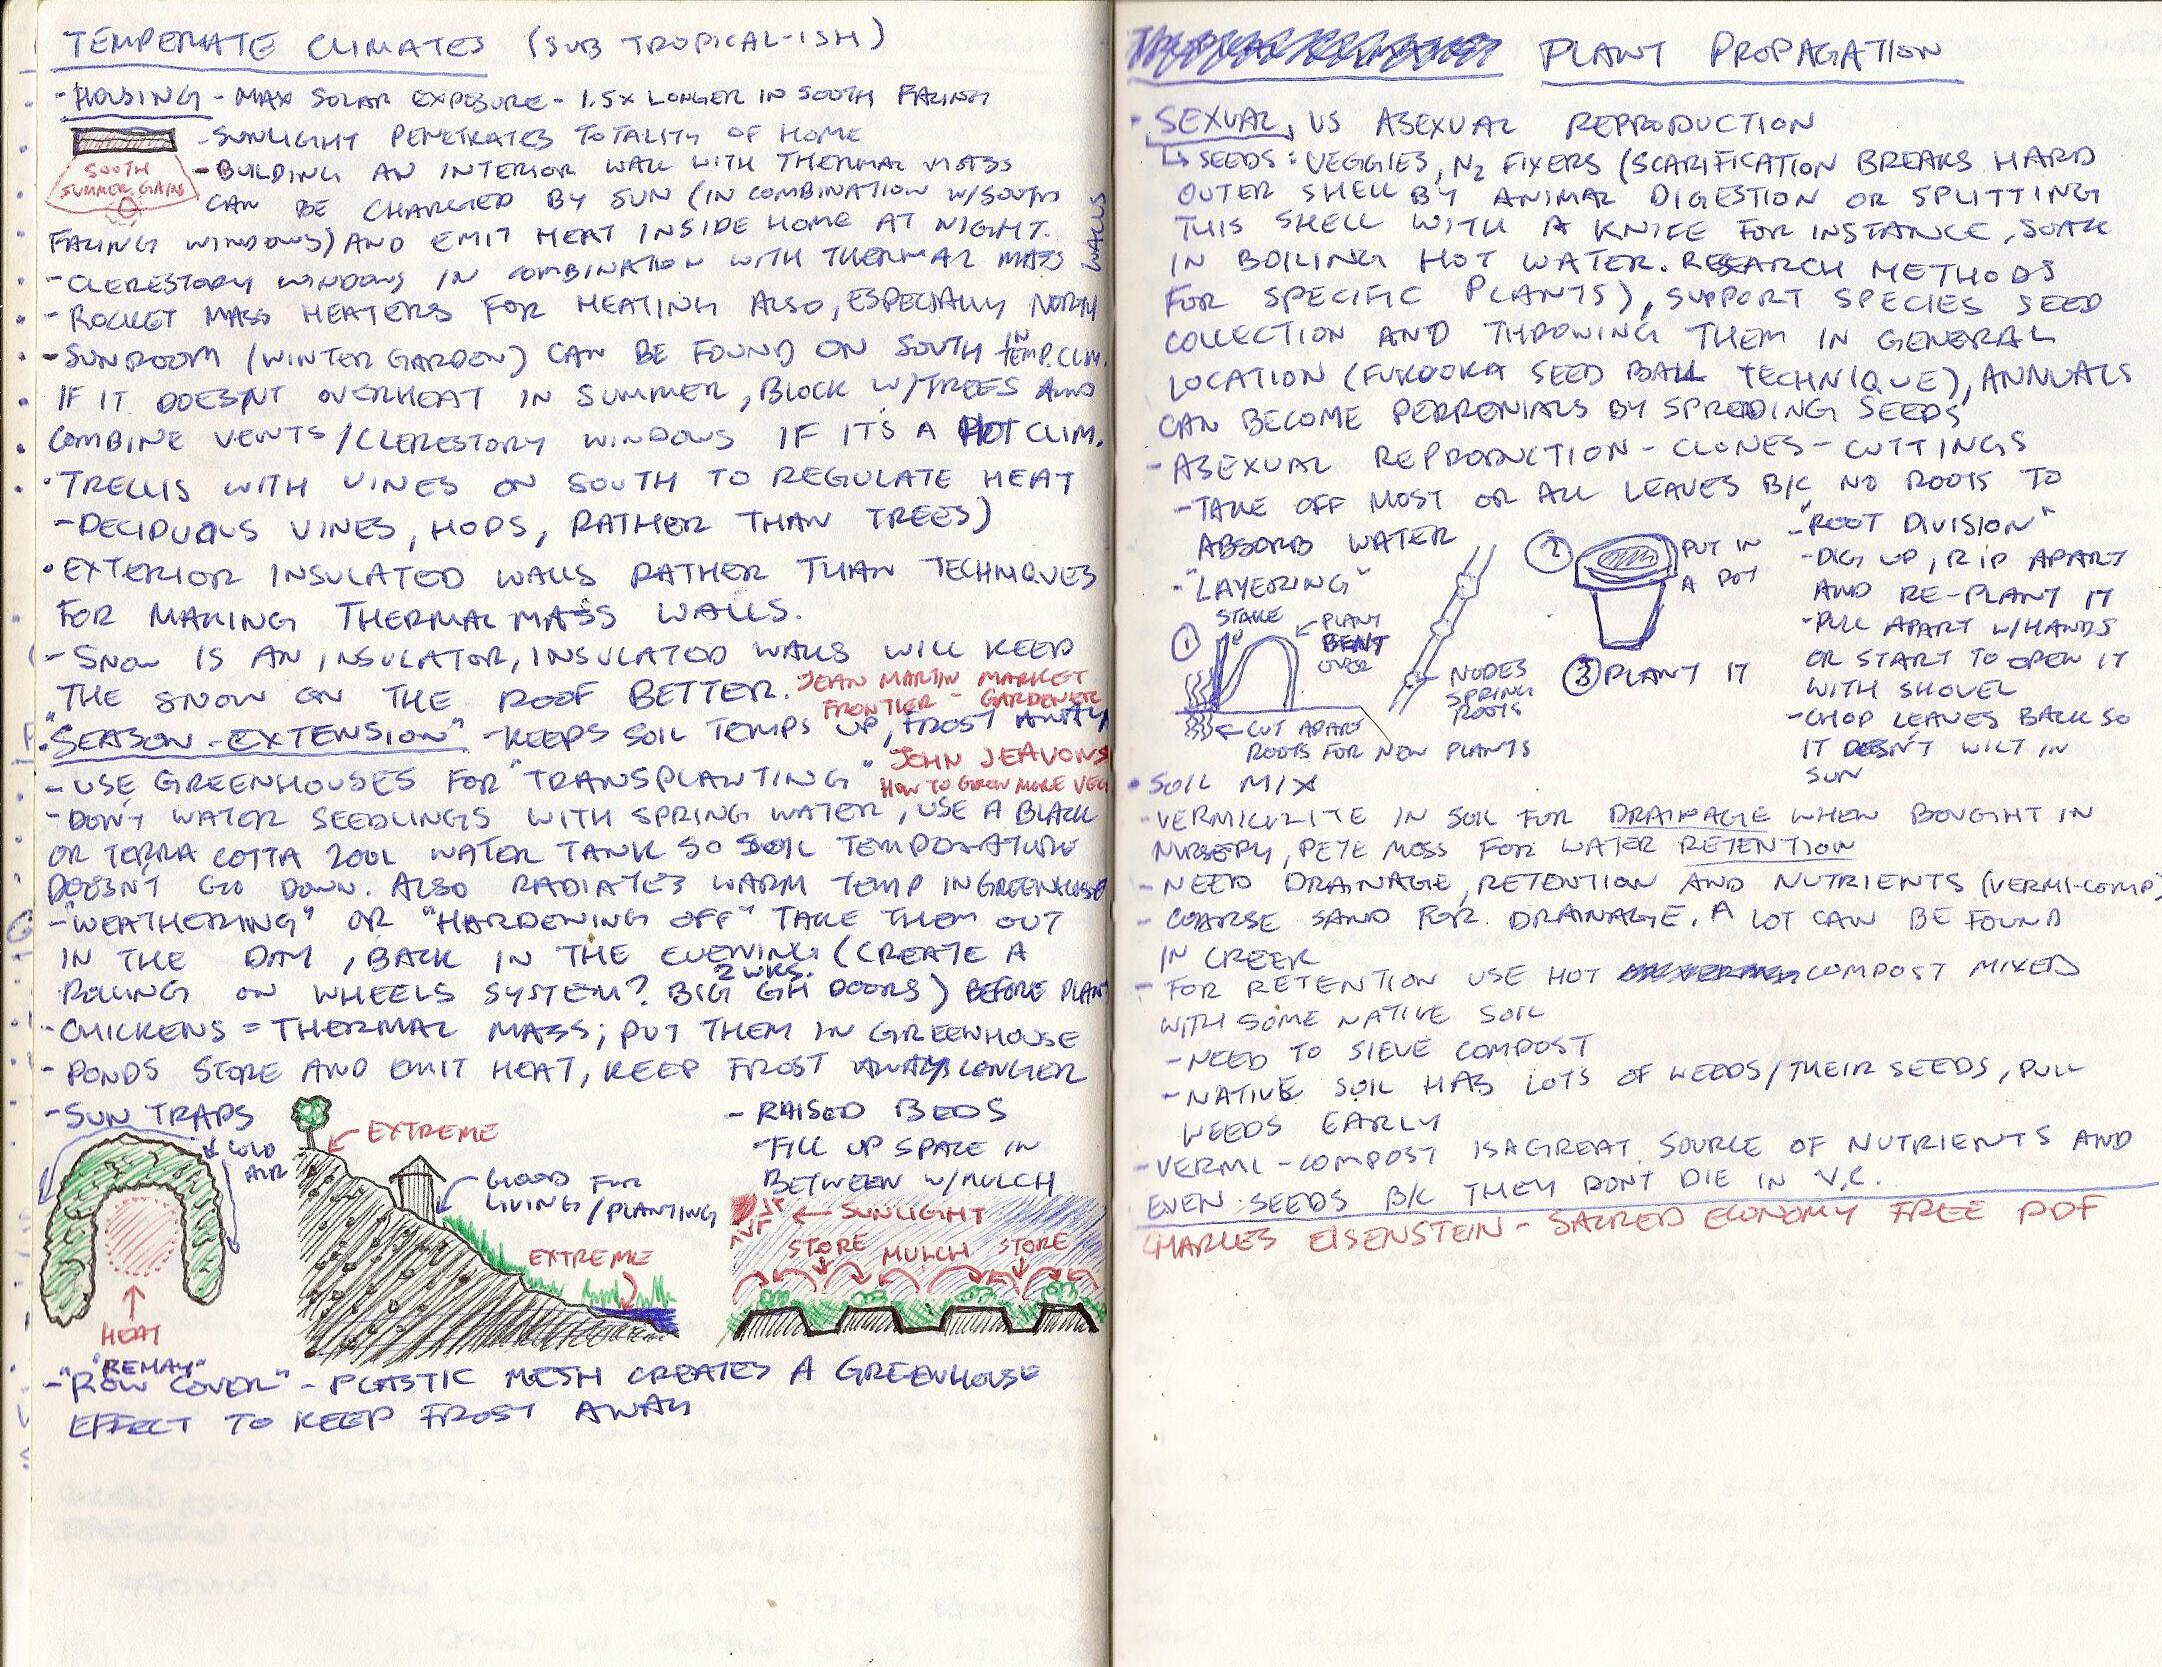 TEMPERATE CLIMATES (SUB TROPICAL-ISH)
- HOUSING - MAX SOLAR EXPOSURE - 1.5X LONGER IN SOUTH FACING
- SUNLIGHT PENETRATES TOTALITY OF HOME
SOUTH
SUMMER GAINS
- BUILDING AN INTERIOR WALL WITH THERMAL MASS
CAN BE CHARGED BY SUN (IN COMBINATION W/SOUTH
FACING WINDOWS) AND EMIT HEAT INSIDE HOME AT NIGHT.
- CLERESTORY WINDOWS IN COMBINATION WITH THERMAL MASS WALLS
- ROCKET MASS HEATERS FOR HEATING ALSO, ESPECIALLY NORTH
- SUNROOM (WINTER GARDEN) CAN BE FOUND ON SOUTH IN TEMP. CLIM.
IF IT DOESN'T OVERHEAT IN SUMMER, BLOCK W/TREES AND
COMBINE VENTS/CLERESTORY WINDOWS IF IT'S A HOT CLIM.
· TRELLIS WITH VINES ON SOUTH TO REGULATE HEAT
- DECIDUOUS VINES, HOPS, RATHER THAN TREES)
· EXTERIOR INSULATED WALLS RATHER THAN TECHNIQUES
FOR MAKING THERMAL MASS WALLS.
- SNOW IS AN INSULATOR, INSULATED WALLS WILL KEEP
THE SNOW ON THE ROOF BETTER.
JEAN MARTIN MARKET
FRONTIER - GARDENER
· "SEASON-EXTENSION" - KEEPS SOIL TEMPS UP, FROST AWAY
- USE GREENHOUSES FOR "TRANSPLANTING"
JOHN JEAVONS
HOW TO GROW MORE VEG
- DON'T WATER SEEDLINGS WITH SPRING WATER, USE A BLACK
OR TERRA COTTA 200L WATER TANK SO SOIL TEMPERATURE
DOESN'T GO DOWN. ALSO RADIATES WARM TEMP IN GREENHOUSE
- "WEATHERING" OR "HARDENING OFF" TAKE THEM OUT
IN THE DAY, BACK IN THE EVENING (CREATE A
ROLLING ON WHEELS SYSTEM? BIG GH DOORS) 2 WKS. BEFORE PLANT
- CHICKENS = THERMAL MASS; PUT THEM IN GREENHOUSE
- PONDS STORE AND EMIT HEAT, KEEP FROST AWAY LONGER
- SUN TRAPS
COLD
AIR
HEAT
EXTREME
GOOD FOR
LIVING/PLANTING
EXTREME
- RAISED BEDS
- FILL UP SPACE IN
BETWEEN W/MULCH
SUNLIGHT
STORE MULCH STORE
"REMAY"
- "ROW COVER" - PLASTIC MESH CREATES A GREENHOUSE
EFFECT TO KEEP FROST AWAY
PLANT PROPAGATION
· SEXUAL, VS ASEXUAL REPRODUCTION
↳ SEEDS: VEGGIES, N2 FIXERS (SCARIFICATION BREAKS HARD
OUTER SHELL BY ANIMAL DIGESTION OR SPLITTING
THIS SHELL WITH A KNIFE FOR INSTANCE, SOAK
IN BOILING HOT WATER. RESEARCH METHODS
FOR SPECIFIC PLANTS), SUPPORT SPECIES SEED
COLLECTION AND THROWING THEM IN GENERAL
LOCATION (FUKOOKA SEED BALL TECHNIQUE), ANNUALS
CAN BECOME PERRENIALS BY SPREDING SEEDS
- ASEXUAL REPRODUCTION - CLONES - CUTTINGS
- TAKE OFF MOST OR ALL LEAVES B/C NO ROOTS TO
ABSORB WATER
- "LAYERING"
1
STAKE
PLANT
BENT
OVER
CUT APART
ROOTS FOR NEW PLANTS
NODES
SPRING
ROOTS
2
PUT IN
A POT
3 PLANT IT
- "ROOT DIVISION"
- DIG UP, RIP APART
AND RE-PLANT IT
- PULL APART W/HANDS
OR START TO OPEN IT
WITH SHOVEL
- CHOP LEAVES BACK SO
IT DOESN'T WILT IN
SUN
· SOIL MIX
- VERMICULITE IN SOIL FOR DRAINAGE WHEN BOUGHT IN
NURSERY, PETE MOSS FOR WATER RETENTION
- NEED DRAINAGE, RETENTION AND NUTRIENTS (VERMI-COMP)
- COARSE SAND FOR DRAINAGE. A LOT CAN BE FOUND
IN CREEK
- FOR RETENTION USE HOT COMPOST MIXED
WITH SOME NATIVE SOIL
- NEED TO SIEVE COMPOST
- NATIVE SOIL HAS LOTS OF WEEDS/THEIR SEEDS, PULL
WEEDS EARLY
- VERMI-COMPOST IS A GREAT SOURCE OF NUTRIENTS AND
EVEN SEEDS B/C THEY DON'T DIE IN V.C.
CHARLES EISENSTEIN - SACRED ECONOMY FREE PDF